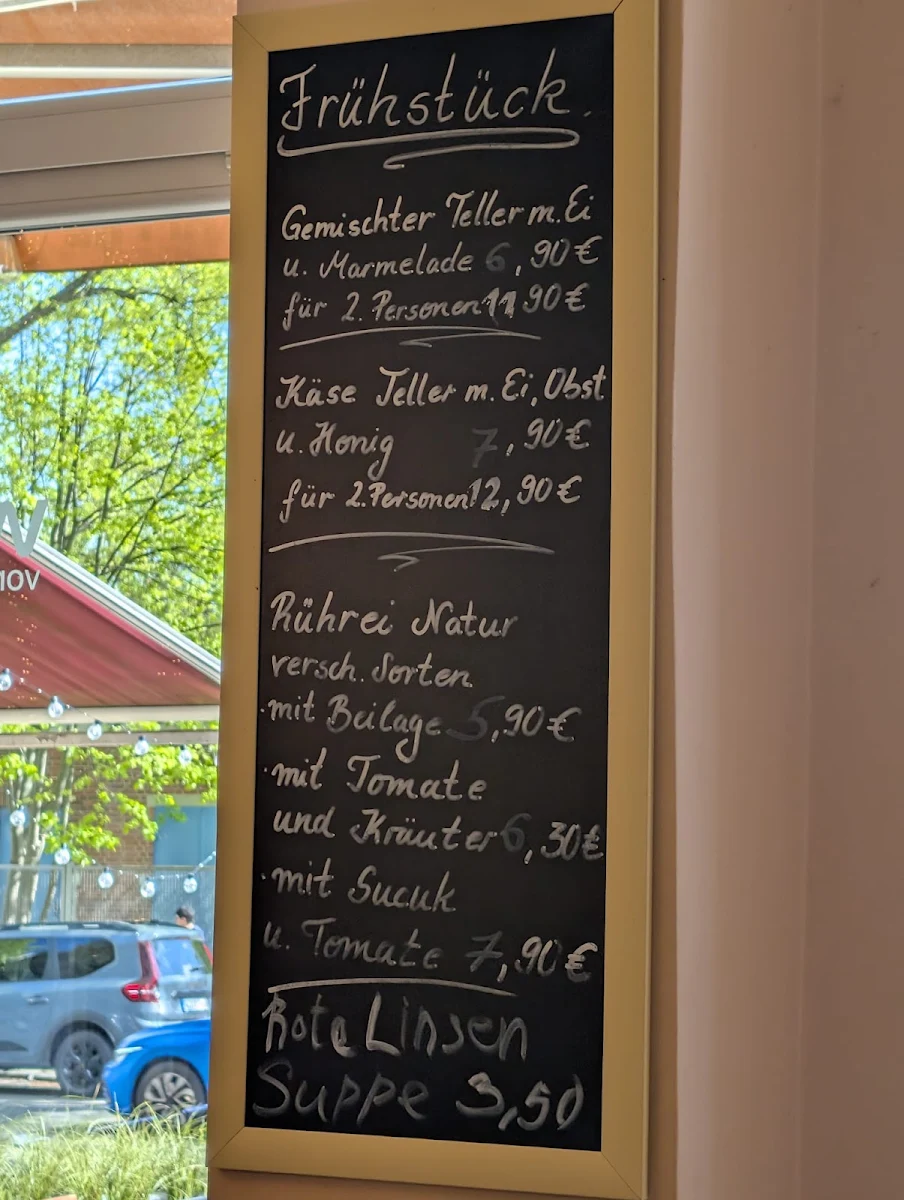 Frühstück
Gemischter Teller m. Ei
u. Marmelade 6,90€
für 2. Personen 11,90€
Käse Teller m. Ei, Obst
u. Honig 7,90€
für 2. Personen 12,90€
Rührei Natur
versch. Sorten
·mit Beilage 5,90€
·mit Tomate
und Kräuter 6,30€
·mit Sucuk
u. Tomate 7,90€
Rote Linsen
Suppe 3,50